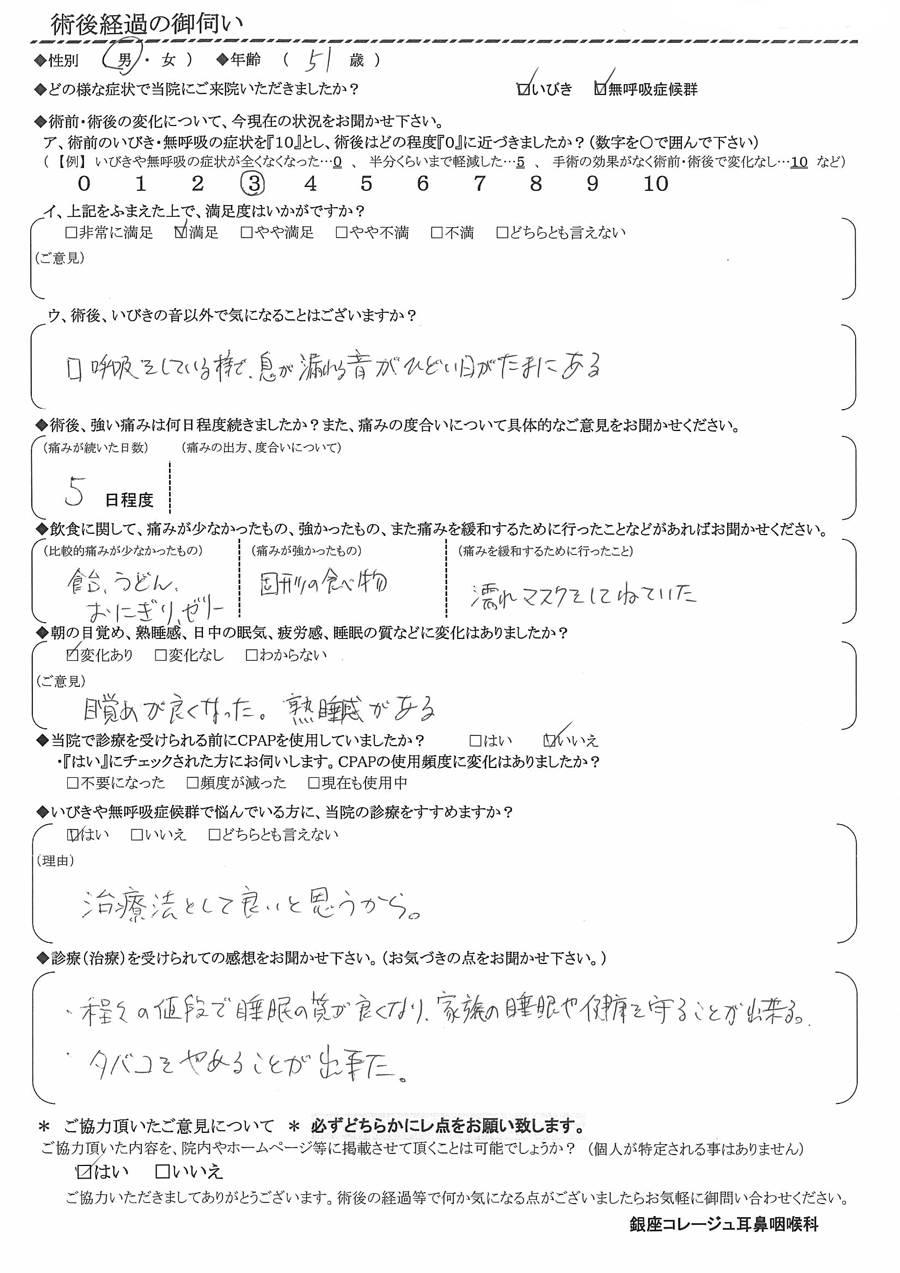 術後経過の御伺い
◆性別 ( 男 ・ 女 ) ◆年齢 ( 51 歳 )
◆どの様な症状で当院にご来院いただきましたか? ☑いびき ☑無呼吸症候群
◆術前・術後の変化について、今現在の状況をお聞かせ下さい。
ア、術前のいびき・無呼吸の症状を『10』とし、術後はどの程度『0』に近づきましたか?(数字を〇で囲んで下さい)
(【例】いびきや無呼吸の症状が全くなくなった…0 、 半分くらいまで軽減した…5 、 手術の効果がなく術前・術後で変化なし…10 など)
0 1 2 3 4 5 6 7 8 9 10
イ、上記をふまえた上で、満足度はいかがですか?
□非常に満足 ☑満足 □やや満足 □やや不満 □不満 □どちらとも言えない
(ご意見)
ウ、術後、いびきの音以外で気になることはございますか?
口呼吸をしている様で、息が漏れる音がひどい日がたまにある
◆術後、強い痛みは何日程度続きましたか?また、痛みの度合いについて具体的なご意見をお聞かせください。
(痛みが続いた日数) (痛みの出方、度合いについて)
5 日程度
◆飲食に関して、痛みが少なかったもの、強かったもの、また痛みを緩和するために行ったことなどがあればお聞かせください。
(比較的痛みが少なかったもの) (痛みが強かったもの) (痛みを緩和するために行ったこと)
飴、うどん、 固形の食べ物 濡れマスクをしてねていた
おにぎり、ゼリー
◆朝の目覚め、熟睡感、日中の眠気、疲労感、睡眠の質などに変化はありましたか?
☑変化あり □変化なし □わからない
(ご意見)
目覚めが良くなった。熟睡感がある
◆当院で診療を受けられる前にCPAPを使用していましたか? □はい ☑いいえ
・『はい』にチェックされた方にお伺いします。CPAPの使用頻度に変化はありましたか?
□不要になった □頻度が減った □現在も使用中
◆いびきや無呼吸症候群で悩んでいる方に、当院の診療をすすめますか?
☑はい □いいえ □どちらとも言えない
(理由)
治療法として良いと思うから。
◆診療(治療)を受けられての感想をお聞かせ下さい。(お気づきの点をお聞かせ下さい。)
・程々の値段で睡眠の質が良くなり、家族の睡眠や健康を守ることが出来る。
・タバコをやめることが出来た。
＊ ご協力頂いたご意見について ＊ 必ずどちらかにレ点をお願い致します。
ご協力頂いた内容を、院内やホームページ等に掲載させて頂くことは可能でしょうか? (個人が特定される事はありません)
☑はい □いいえ
ご協力いただきましてありがとうございます。術後の経過等で何か気になる点がございましたらお気軽に御問い合わせください。
銀座コレージュ耳鼻咽喉科